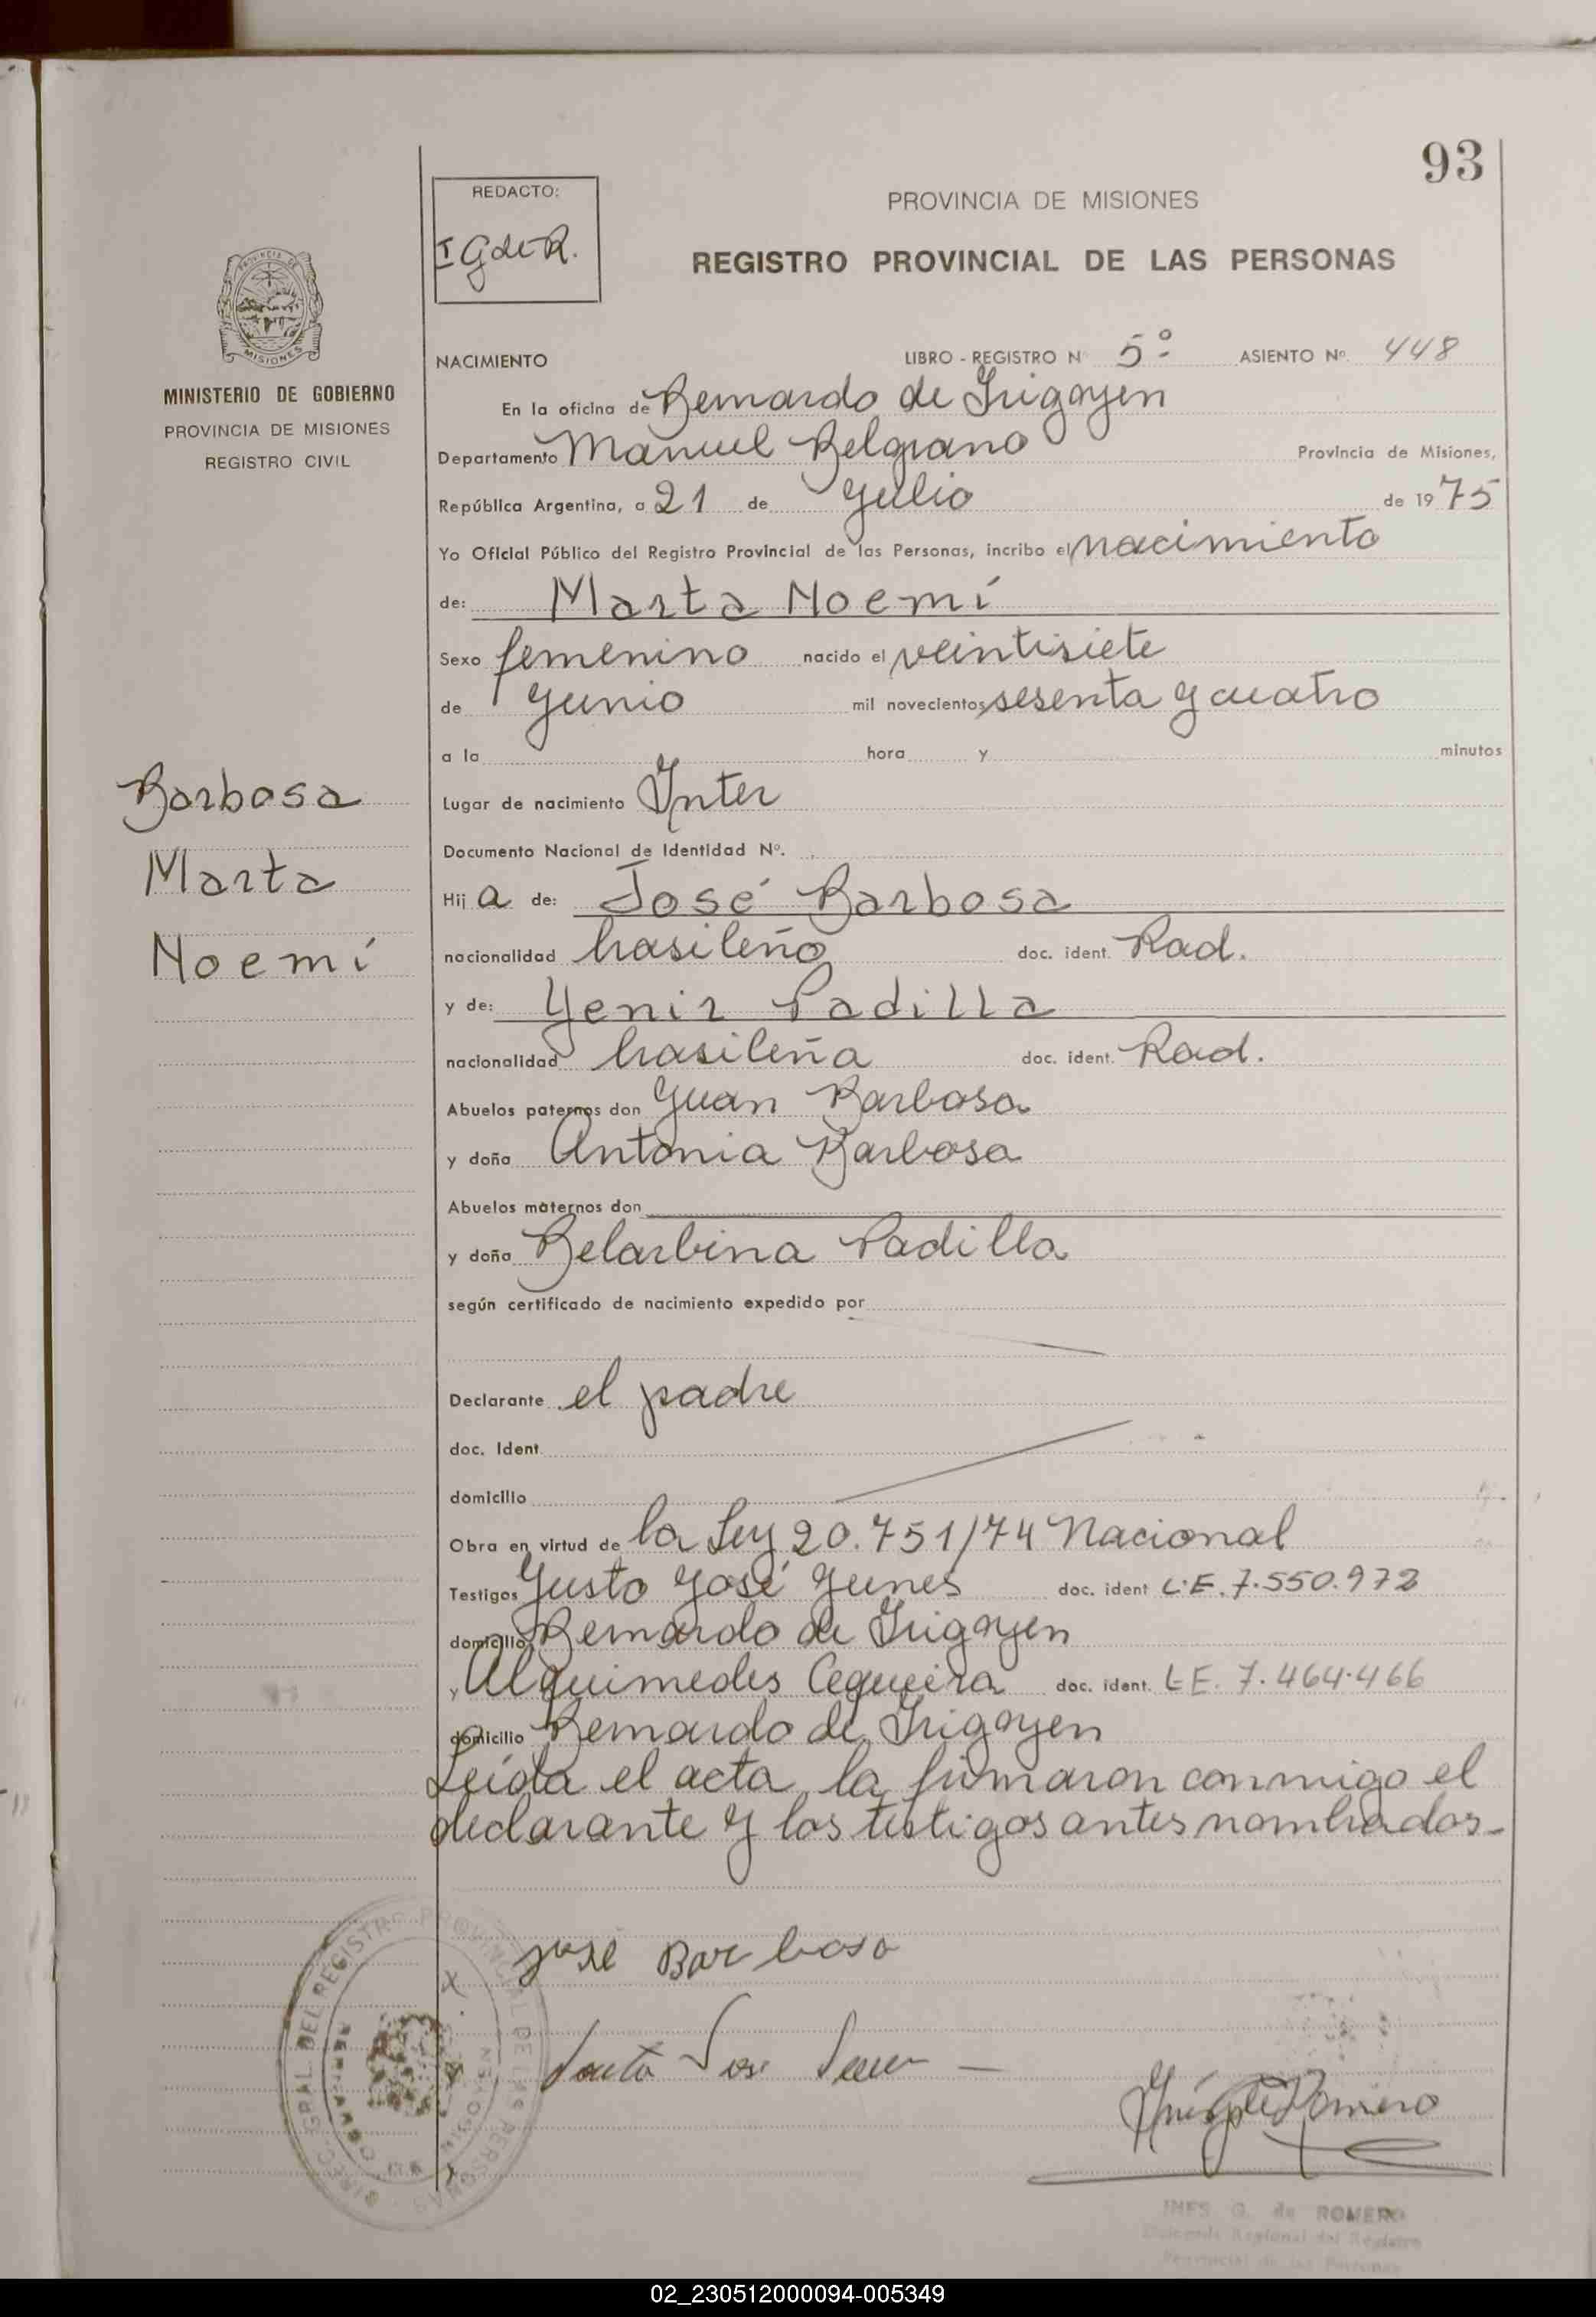 93
REDACTO:
I G de R.
PROVINCIA DE MISIONES
REGISTRO PROVINCIAL DE LAS PERSONAS
MISIONES
MINISTERIO DE GOBIERNO
PROVINCIA DE MISIONES
REGISTRO CIVIL
NACIMIENTO LIBRO - REGISTRO N 5º ASIENTO Nº 448
En la oficina de Bernardo de Irigoyen
Departamento Manuel Belgrano Provincia de Misiones,
República Argentina, a 21 de Julio de 1975
Yo Oficial Público del Registro Provincial de las Personas, incribo el nacimiento
de: Marta Noemí
Sexo femenino nacido el veintisiete
de Junio mil novecientos sesenta y cuatro
a la hora y minutos
Barbosa
Marta
Noemí
Lugar de nacimiento Inter
Documento Nacional de Identidad Nº.
Hij a de: José Barbosa
nacionalidad brasileño doc. ident. Rad.
y de: Yenir Padilla
nacionalidad brasileña doc. ident. Rad.
Abuelos paternos don Juan Barbosa
y doña Antonia Barbosa
Abuelos maternos don
y doña Belarbina Padilla
según certificado de nacimiento expedido por
Declarante el padre
doc. Ident
domicilio
Obra en virtud de la Ley 20.751/74 Nacional
Testigos Justo José Yunes doc. ident L.E. 7.550.972
domicilio Bernardo de Irigoyen
y Alquimedes Cequeira doc. ident. L E. 7.464.466
domicilio Bernardo de Irigoyen
Leída el acta, la firmaron conmigo el
declarante y los testigos antes nombrados-
José Barbosa
INES G. de ROMERO
Delegada Regional del Registro
Provincial de las Personas
DIREC. GRAL. DEL REGISTRO PROVINCIAL DE LAS PERSONAS
02_230512000094-005349